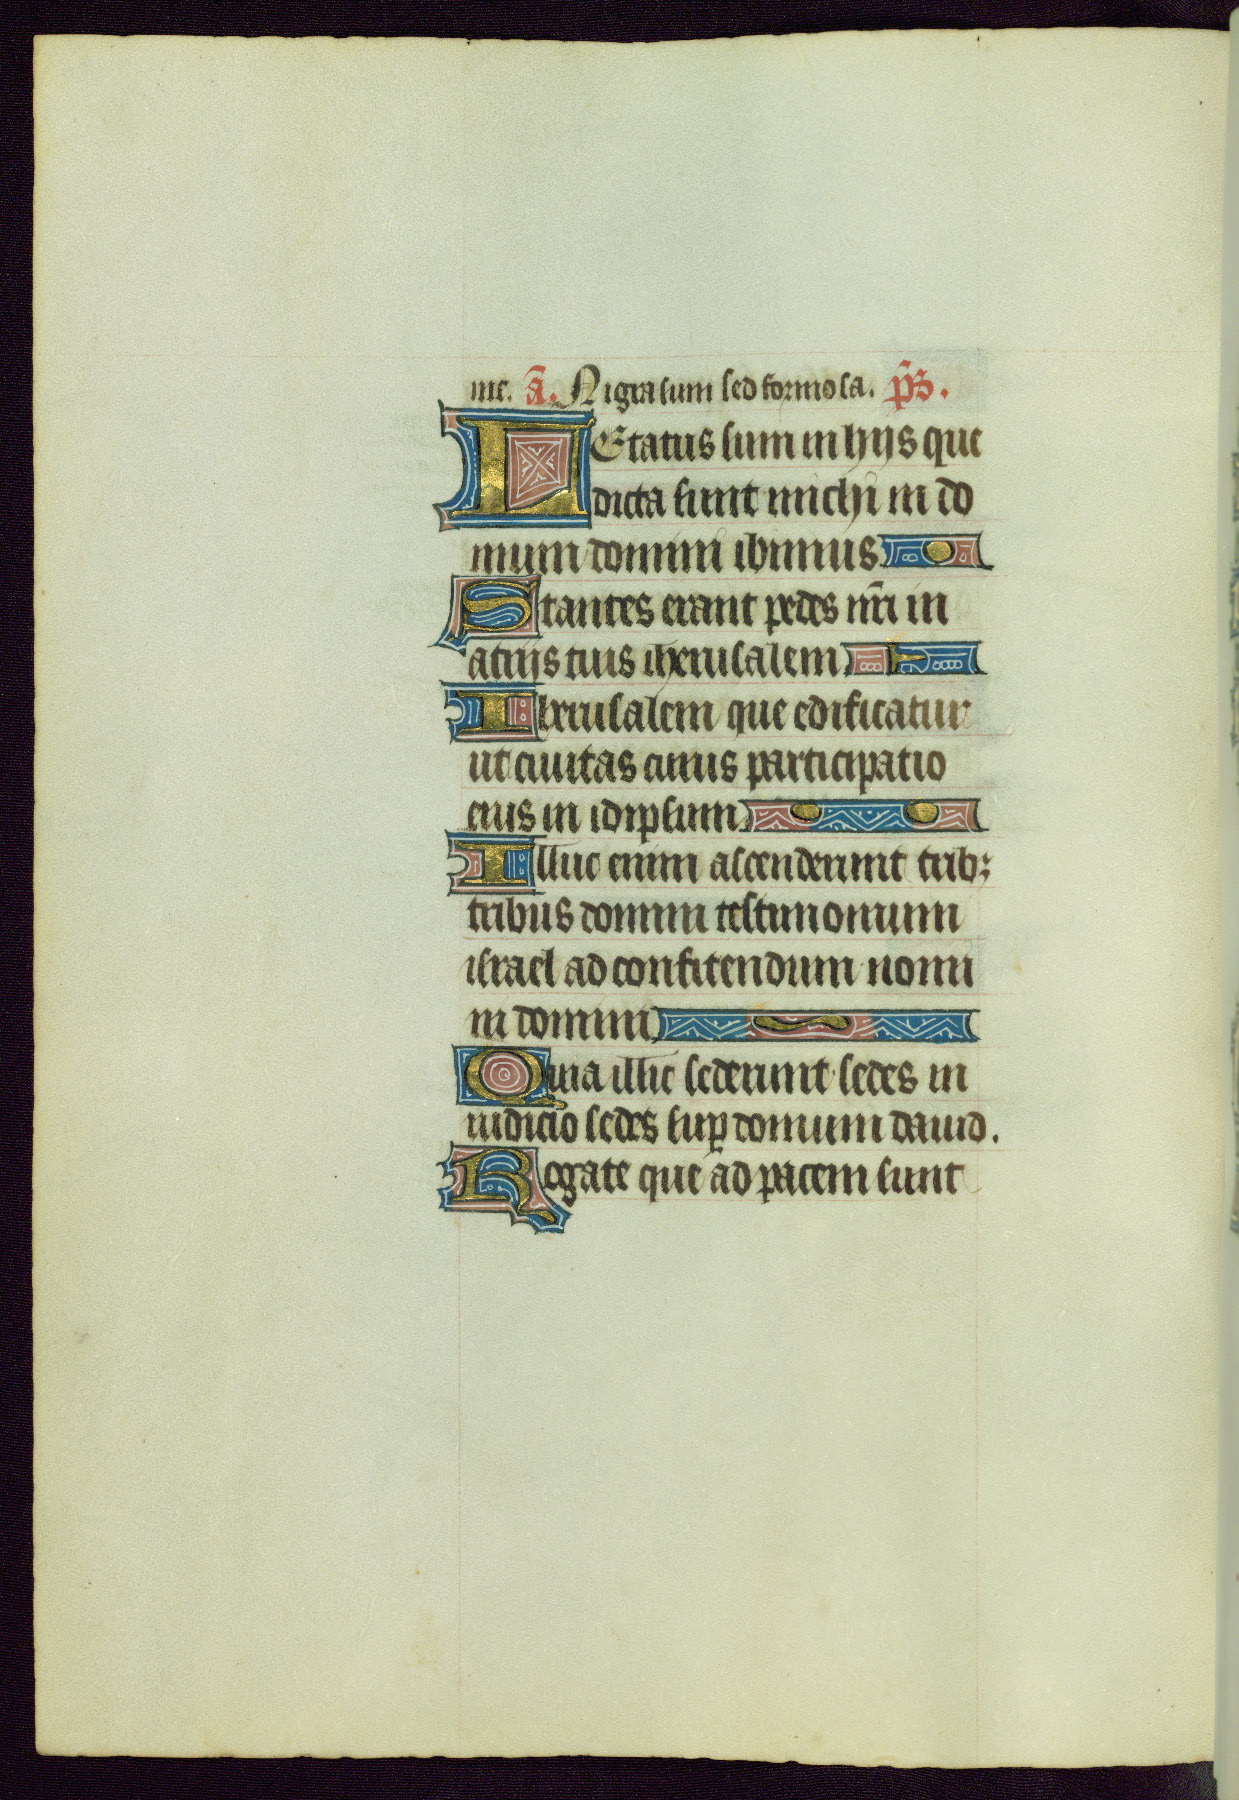 me. ā. Nigra sum sed formosa. p̄s.
LEtatus sum in hijs que
dicta sunt michi in do
mum domini ibimus
Stantes erant pedes nr̄i in
atrijs tuis iherusalem.
Iherusalem que edificatur
ut ciuitas cuius participatio
eius in idipsum.
Illuc enim ascenderunt trib;
tribus domini testimonium
israel ad confitendum nomi
ni domini
Quia illic sederunt sedes in
iudicio sedes sup̱ domum dauid.
Rogate que ad pacem sunt